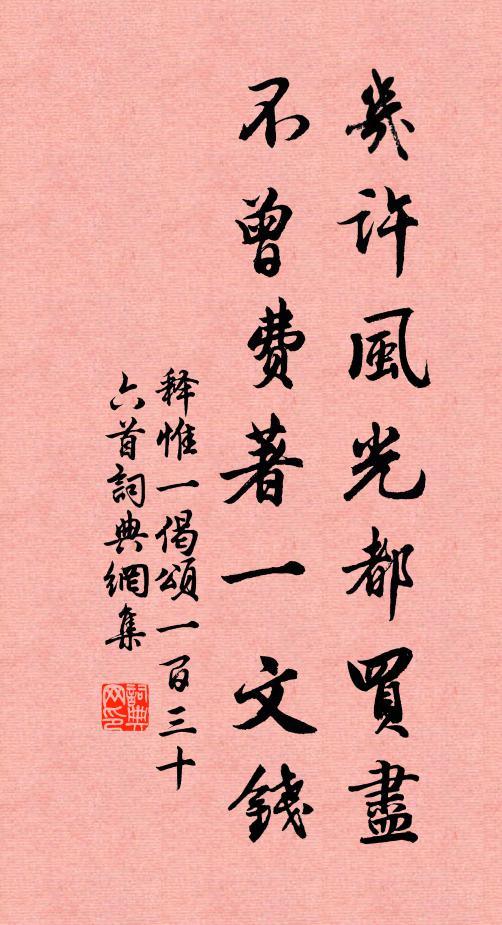 幾許風光都買盡
不曾費著一文錢
释惟一偈頌一百三十
六首詞典網集
詞典网印